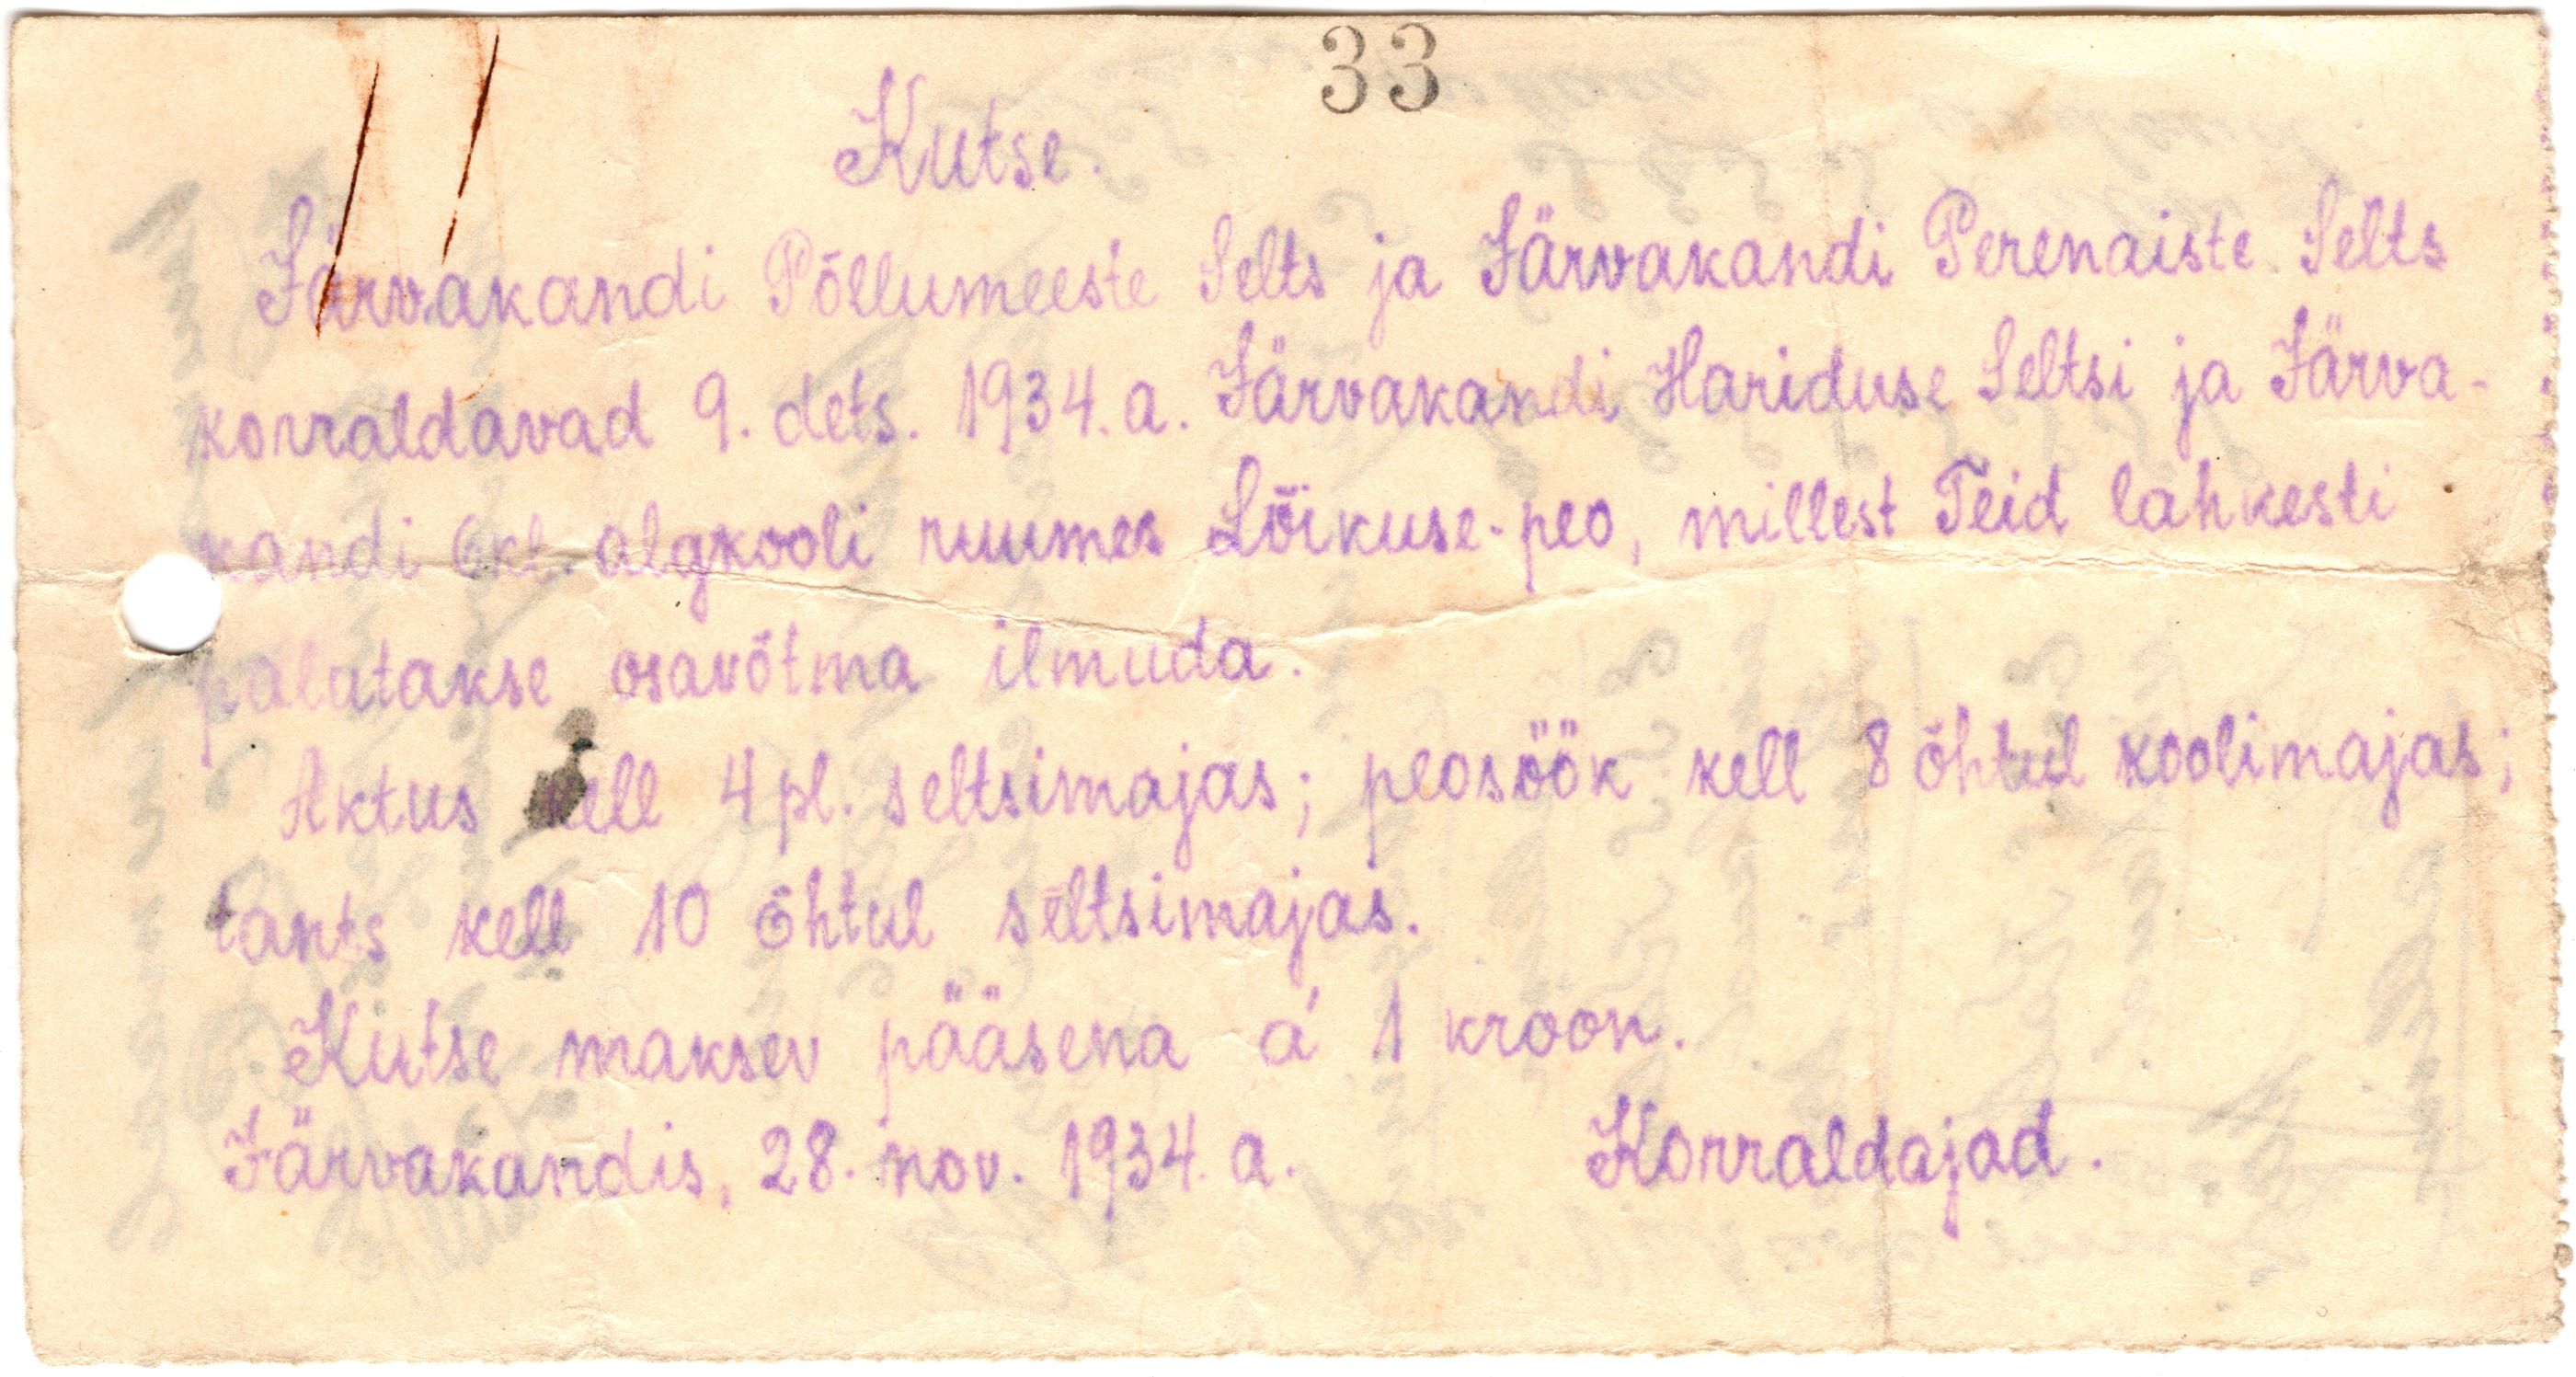 33
Kutse.
Järvakandi Põllumeeste Selts ja Järvakandi Perenaiste Selts
korraldavad 9. dets. 1934. a. Järvakandi Hariduse Seltsi ja Järva-
kandi 6kl. algkooli ruumes Lõikuse-peo, millest Teid lahkesti
palutakse osavõtma ilmuda.
Aktus kell 4 pl. seltsimajas; peosöök kell 8 õhtul koolimajas;
tants kell 10 õhtul seltsimajas.
Kutse maksev pääsena á 1 kroon.
Järvakandis, 28. nov. 1934. a. Korraldajad.